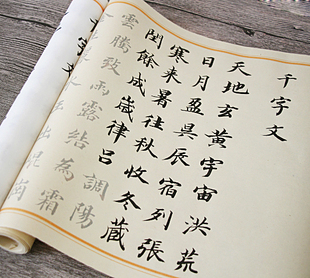 千字文
天地玄黃宇宙洪荒
日月盈昃辰宿列張
寒来暑往秋收冬藏
閏餘成歲律呂調陽
雲騰致雨露結為霜
出崑岡